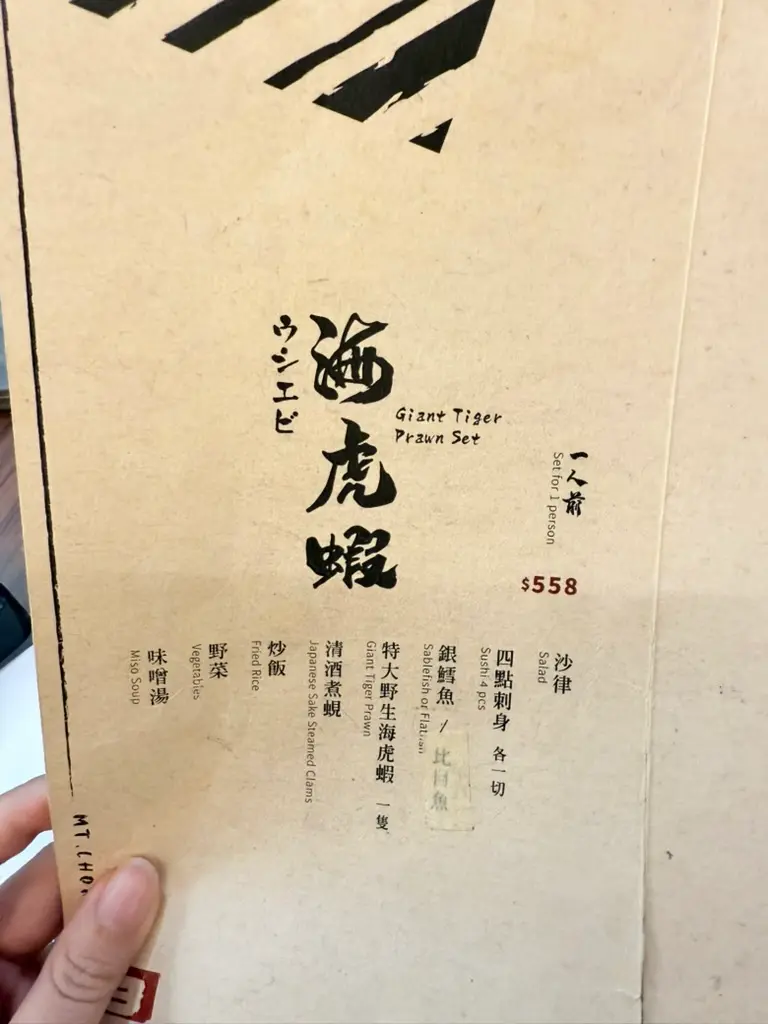 海虎蝦
ウシエビ
Giant Tiger
Prawn Set
一人前
Set for 1 person
$558
沙律
Salad
四點刺身 各一切
Sushi 4 pcs
銀鱈魚 / 比目魚
Sablefish or
特大野生海虎蝦 一隻
Giant Tiger Prawn
清酒煮蜆
Japanese Sake Steamed Clams
炒飯
Fried Rice
野菜
Vegetables
味噌湯
Miso Soup
MT.